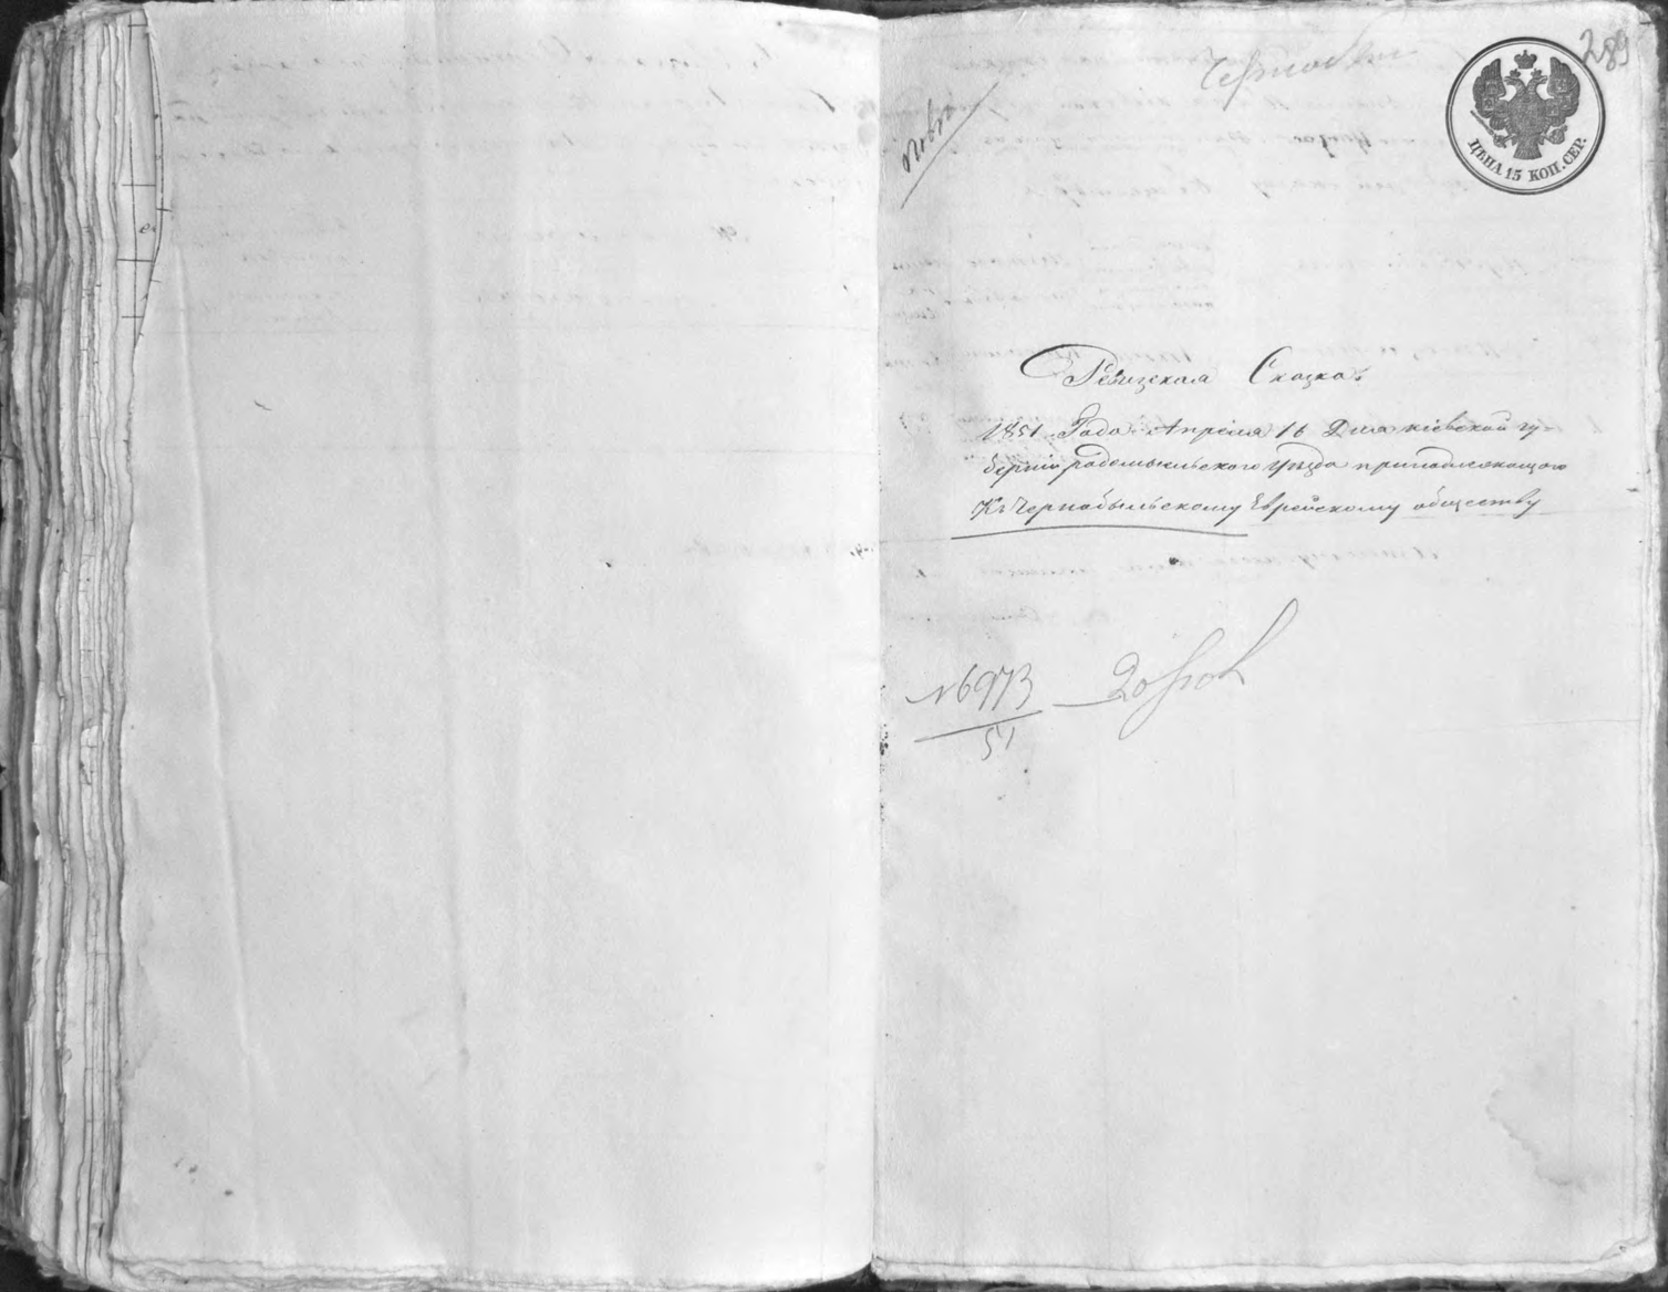 289
Чернобыль
ЦѢНА 15 КОП. СЕР.
Ревизская Сказка
1851 Года Апреля 16 Дня кіевской гу=
берніи радомысльского уѣзда принадлежащого
Къ Чернобыльскому Еврейскому обществу
№6973
51